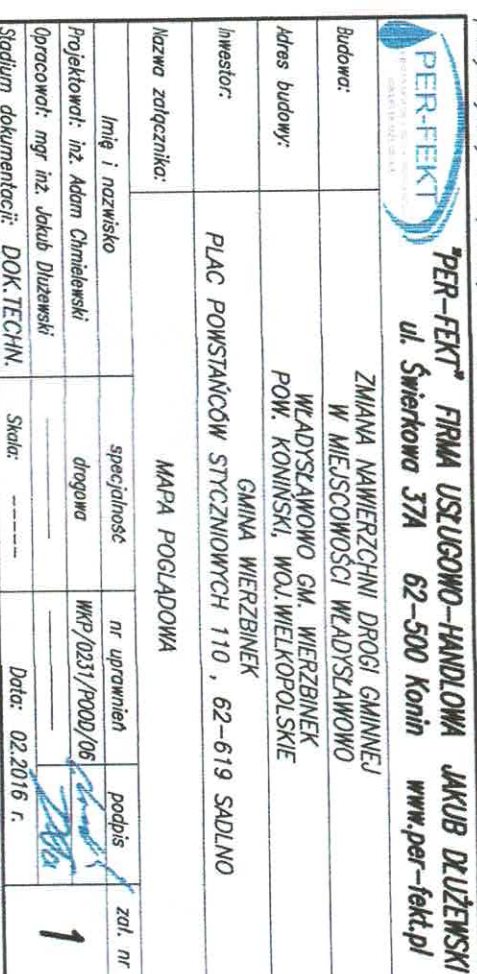 PER-FEKT
"PER-FEKT" FIRMA USŁUGOWO-HANDLOWA JAKUB DŁUŻEWSKI
ul. Świerkowa 37A 62-500 Konin www.per-fekt.pl
Budowa:
ZMIANA NAWIERZCHNI DROGI GMINNEJ
W MIEJSCOWOŚCI WŁADYSŁAWOWO
Adres budowy:
WŁADYSŁAWOWO GM. WIERZBINEK
POW. KONIŃSKI, WOJ.WIELKOPOLSKIE
Inwestor:
GMINA WIERZBINEK
PLAC POWSTAŃCÓW STYCZNIOWYCH 110 , 62-619 SADLNO
Nazwa załącznika:
MAPA POGLĄDOWA
Imię i nazwisko specjalność nr uprawnień podpis zał. nr
Projektował: inż. Adam Chmielewski drogowa WKP/0231/POOD/06
Opracował: mgr inż. Jakub Dłużewski
1
Stadium dokumentacji: DOK.TECHN. Skala: ----- Data: 02.2016 r.